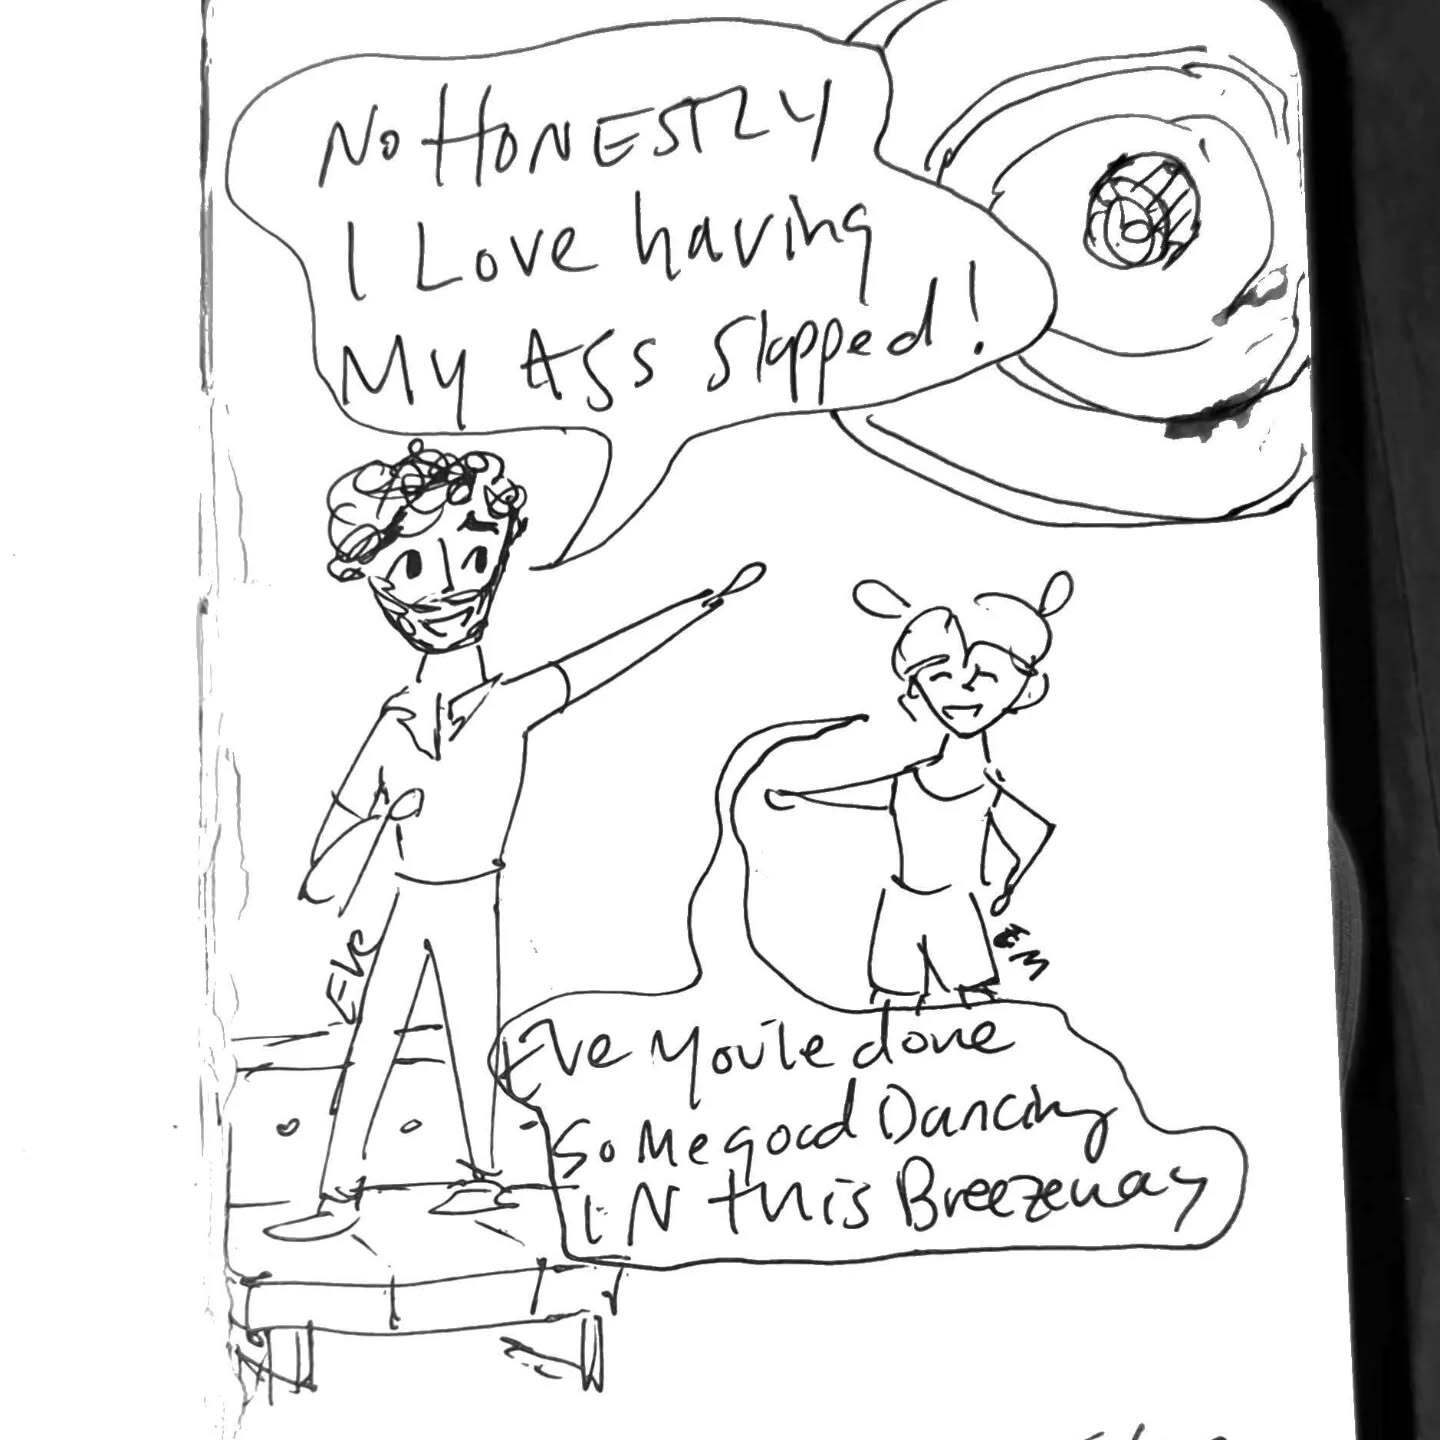 No HONESTLY
I Love having
My Ass slapped!
EVE
EM
Eve you've done
some good Dancing
IN this Breezeway